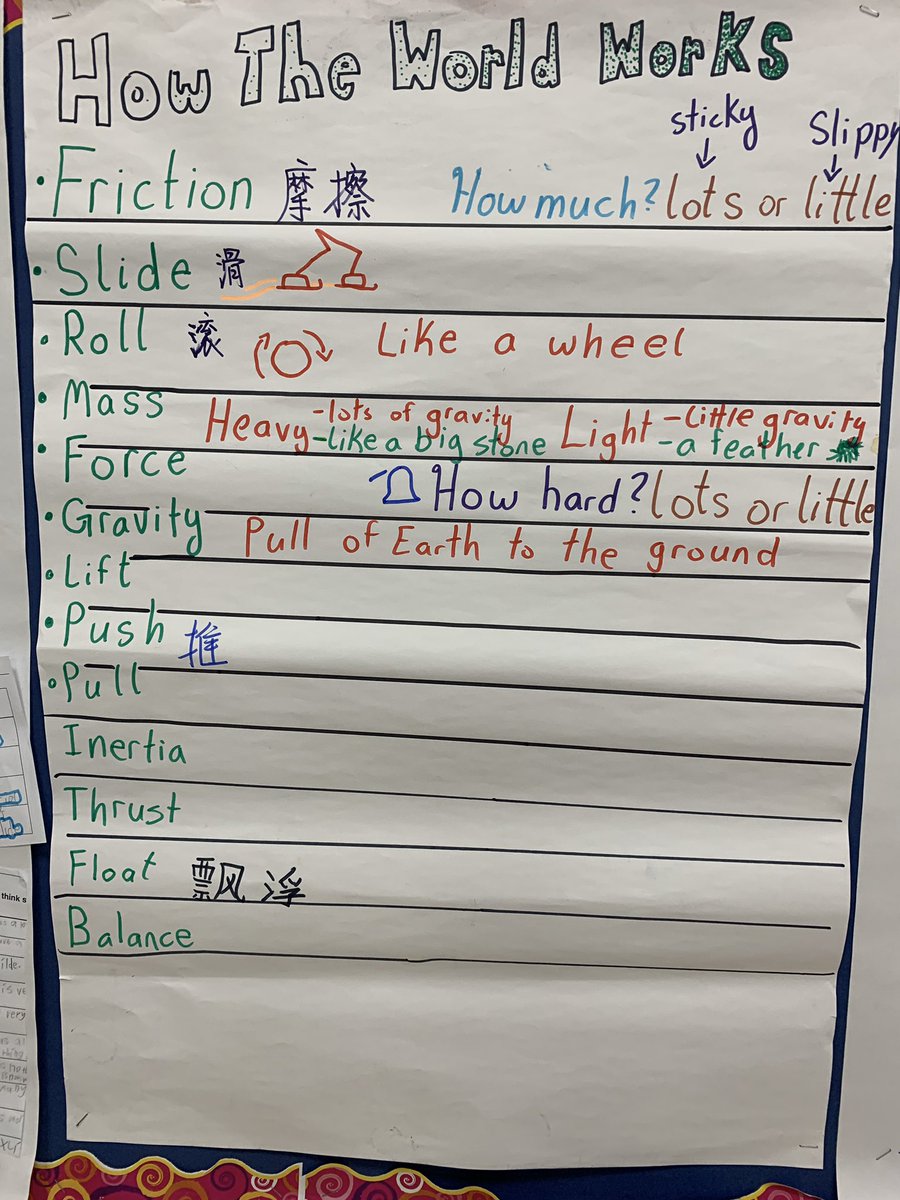 How The World Works
sticky Slippy
• Friction 摩擦 How much? lots or little
• Slide 滑
• Roll 滚 Like a wheel
• Mass Heavy -lots of gravity Light -little gravity
-like a big stone -a feather
• Force How hard? lots or little
• Gravity Pull of Earth to the ground
• Lift
• Push 推
• Pull
Inertia
Thrust
Float 飘浮
Balance
think s